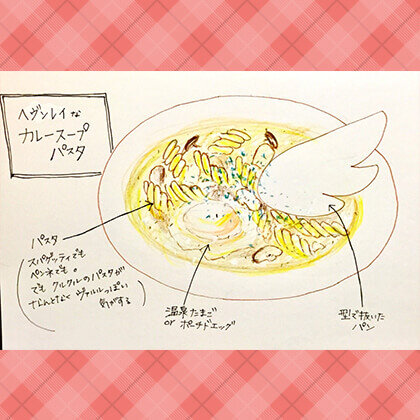 ヘヴンレイな
カレースープ
パスタ
パスタ
スパゲッティでも
ペンネでも。
でもクルクルのパスタが
なんとなくヴァルルっぽい
気がする
温泉たまご
or ポーチドエッグ
型で抜いた
パン